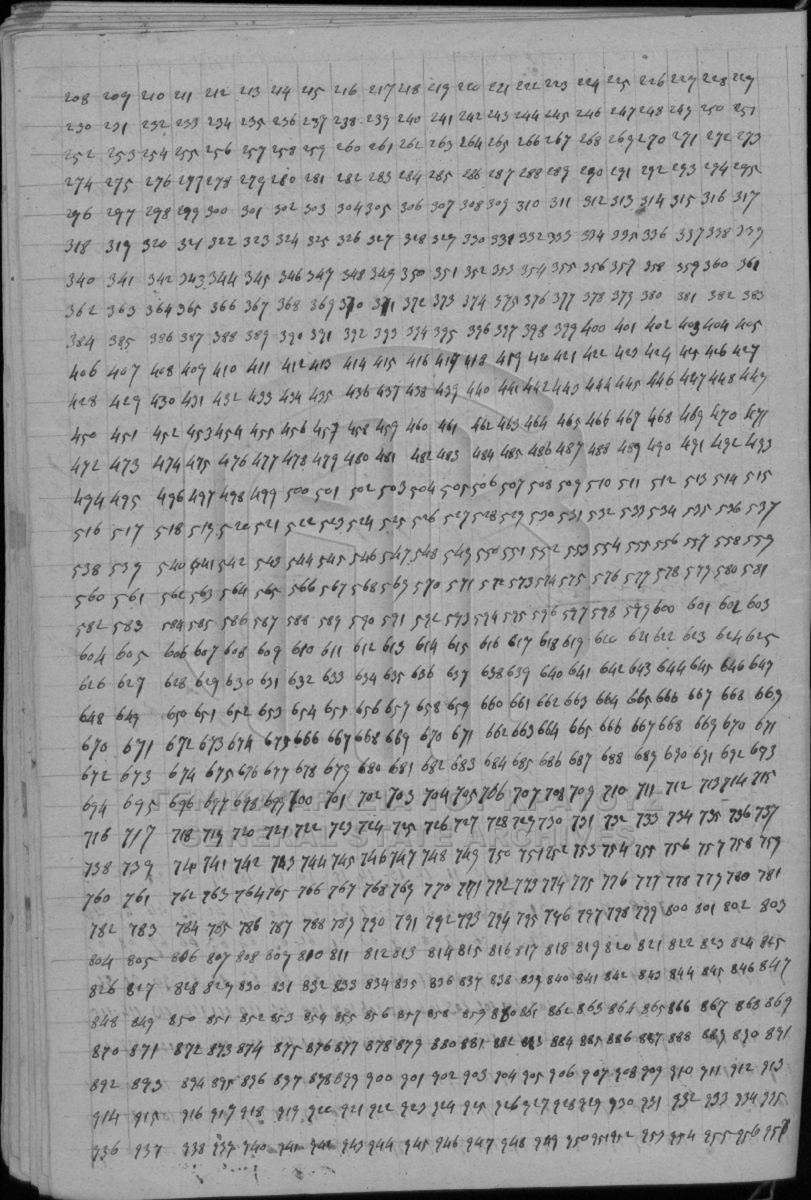 208 209 210 211 212 213 214 215 216 217 218 219 220 221 222 223 224 225 226 227 228 229
230 231 232 233 234 235 236 237 238 239 240 241 242 243 244 245 246 247 248 249 250 251
252 253 254 255 256 257 258 259 260 261 262 263 264 265 266 267 268 269 270 271 272 273
274 275 276 277 278 279 280 281 282 283 284 285 286 287 288 289 290 291 292 293 294 295
296 297 298 299 300 301 302 303 304 305 306 307 308 309 310 311 312 313 314 315 316 317
318 319 320 321 322 323 324 325 326 327 328 329 330 331 332 333 334 335 336 337 338 339
340 341 342 343 344 345 346 347 348 349 350 351 352 353 354 355 356 357 358 359 360 361
362 363 364 365 366 367 368 369 370 371 372 373 374 375 376 377 378 379 380 381 382 383
384 385 386 387 388 389 390 391 392 393 394 395 396 397 398 399 400 401 402 403 404 405
406 407 408 409 410 411 412 413 414 415 416 417 418 419 420 421 422 423 424 425 426 427
428 429 430 431 432 433 434 435 436 437 438 439 440 441 442 443 444 445 446 447 448 449
450 451 452 453 454 455 456 457 458 459 460 461 462 463 464 465 466 467 468 469 470 471
472 473 474 475 476 477 478 479 480 481 482 483 484 485 486 487 488 489 490 491 492 493
494 495 496 497 498 499 500 501 502 503 504 505 506 507 508 509 510 511 512 513 514 515
516 517 518 519 520 521 522 523 524 525 526 527 528 529 530 531 532 533 534 535 536 537
538 539 540 541 542 543 544 545 546 547 548 549 550 551 552 553 554 555 556 557 558 559
560 561 562 563 564 565 566 567 568 569 570 571 572 573 574 575 576 577 578 579 580 581
582 583 584 585 586 587 588 589 590 591 592 593 594 595 596 597 598 599 600 601 602 603
604 605 606 607 608 609 610 611 612 613 614 615 616 617 618 619 620 621 622 623 624 625
626 627 628 629 630 631 632 633 634 635 636 637 638 639 640 641 642 643 644 645 646 647
648 649 650 651 652 653 654 655 656 657 658 659 660 661 662 663 664 665 666 667 668 669
670 671 672 673 674 675 666 667 668 669 670 671 662 663 664 665 666 667 668 669 670 671
672 673 674 675 676 677 678 679 680 681 682 683 684 685 686 687 688 689 690 691 692 693
694 695 696 697 698 699 700 701 702 703 704 705 706 707 708 709 710 711 712 713 714 715
ΓΕΝΙΚΑ ΑΡΧΕΙΑ ΤΟΥ ΚΡΑΤΟΥΣ
716 717 718 719 720 721 722 723 724 725 726 727 728 729 730 731 732 733 734 735 736 737
GENERAL STATE ARCHIVES
738 739 740 741 742 743 744 745 746 747 748 749 750 751 752 753 754 755 756 757 758 759
760 761 762 763 764 765 766 767 768 769 770 771 772 773 774 775 776 777 778 779 780 781
782 783 784 785 786 787 788 789 790 791 792 793 794 795 796 797 798 799 800 801 802 803
804 805 806 807 808 809 810 811 812 813 814 815 816 817 818 819 820 821 822 823 824 825
826 827 828 829 830 831 832 833 834 835 836 837 838 839 840 841 842 843 844 845 846 847
848 849 850 851 852 853 854 855 856 857 858 859 860 861 862 863 864 865 866 867 868 869
870 871 872 873 874 875 876 877 878 879 880 881 882 883 884 885 886 887 888 889 890 891
892 893 894 895 896 897 898 899 900 901 902 903 904 905 906 907 908 909 910 911 912 913
914 915 916 917 918 919 920 921 922 923 924 925 926 927 928 929 930 931 932 933 934 935
936 937 938 939 940 941 942 943 944 945 946 947 948 949 950 951 952 953 954 955 956 957